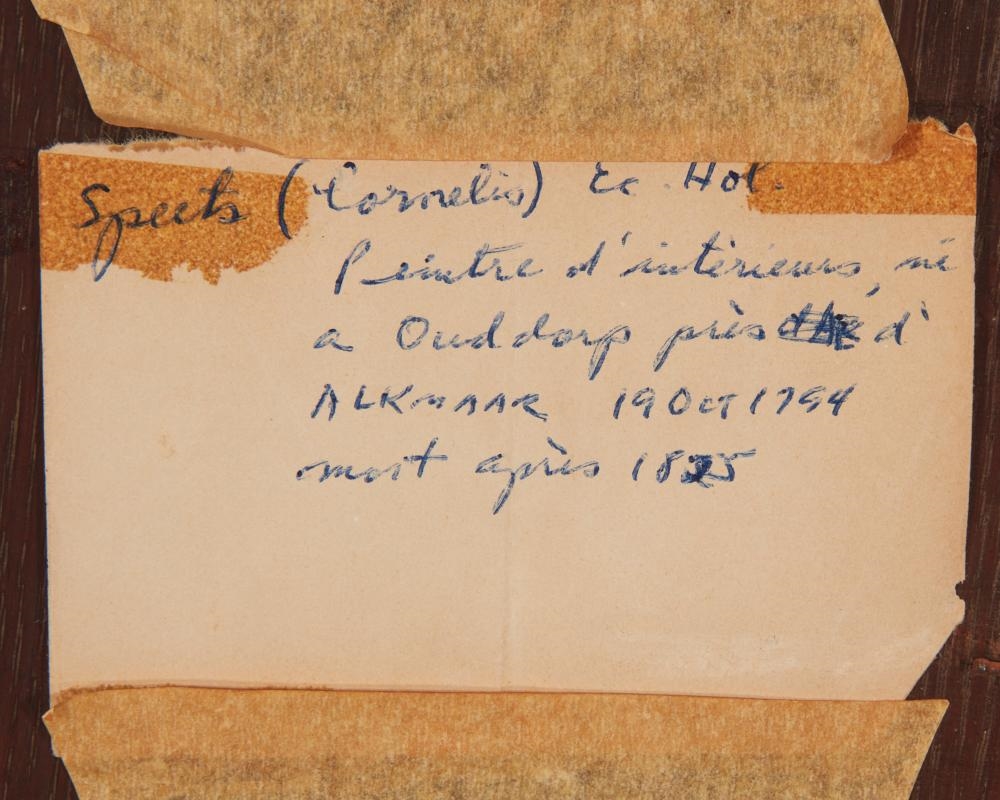 Speets (Cornelis) Ec. Hol.
Peintre d'intérieurs, né
a Ouddorp près d'
ALKMAAR 19 Oct 1794
mort après 1825